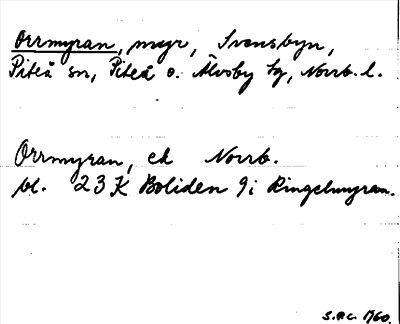 Orrmyran, myr, Svensbyn,
Piteå sn, Piteå o. Älvsby tg, Norrb. l.
Orrmyran, ek Norrb.
bl. 23 K Boliden 9i Ringelmyran.
S.O.C. 1960.